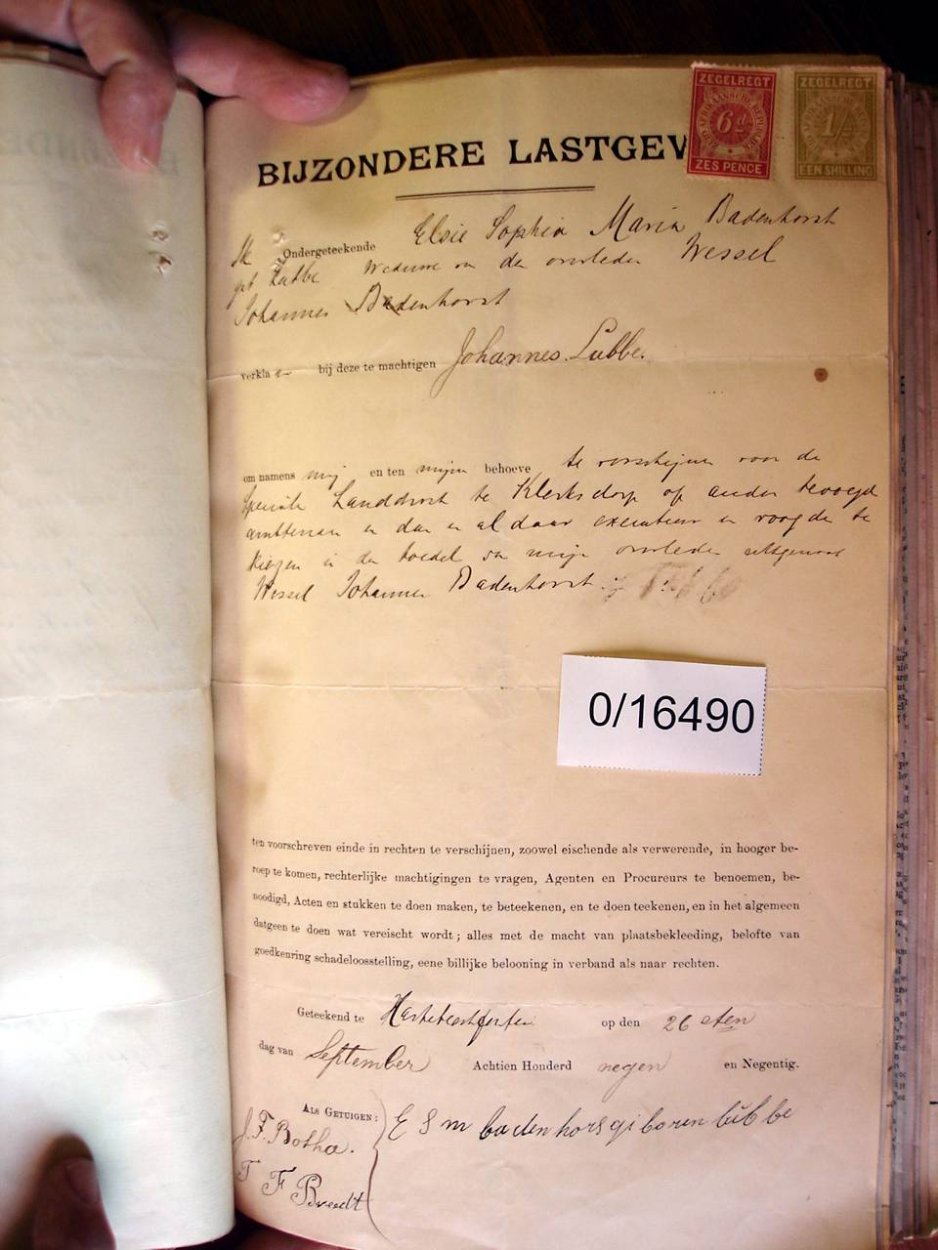 BIJZONDERE LASTGEV
ZEGELREGT
6d
ZES PENCE
ZEGELREGT
1/
EEN SHILLING
Ik Ondergeteekende Elsie Sophia Maria Badenhorst
geb Lubbe Weduwe van de overleden Wessel
Johannes Badenhorst
verkla e bij deze te machtigen Johannes Lubbe.
om namens mij en ten mijne behoeve te verschijnen voor de
Speciale Landdrost te Klerksdorp of ander bevoegd
ambtenaar en dan en aldaar executeur en voogden te
kiezen in de boedel van mijn overleden echtgenoot
Wessel Johannes Badenhorst.
0/16490
ten voorschreven einde in rechten te verschijnen, zoowel eischende als verwerende, in hooger be-
roep te komen, rechterlijke machtigingen te vragen, Agenten en Procureurs te benoemen, be-
noodigd, Acten en stukken te doen maken, te beteekenen, en te doen teekenen, en in het algemeen
datgeen te doen wat vereischt wordt; alles met de macht van plaatsbekleeding, belofte van
goedkeuring schadeloosstelling, eene billijke belooning in verband als naar rechten.
Geteekend te Hartebeestfontein op den 26 sten
dag van September Achtien Honderd negen en Negentig.
Als Getuigen:
E S M badenhors geboren lubbe
J. F. Botha.
T F Breedt